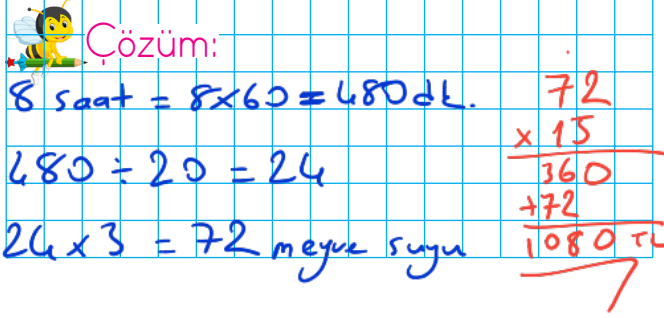 Çözüm:
8 saat = 8x60 = 480 dk.
480 ÷ 20 = 24
24 x 3 = 72 meyve suyu
72
x 15
360
+72
1080 TL